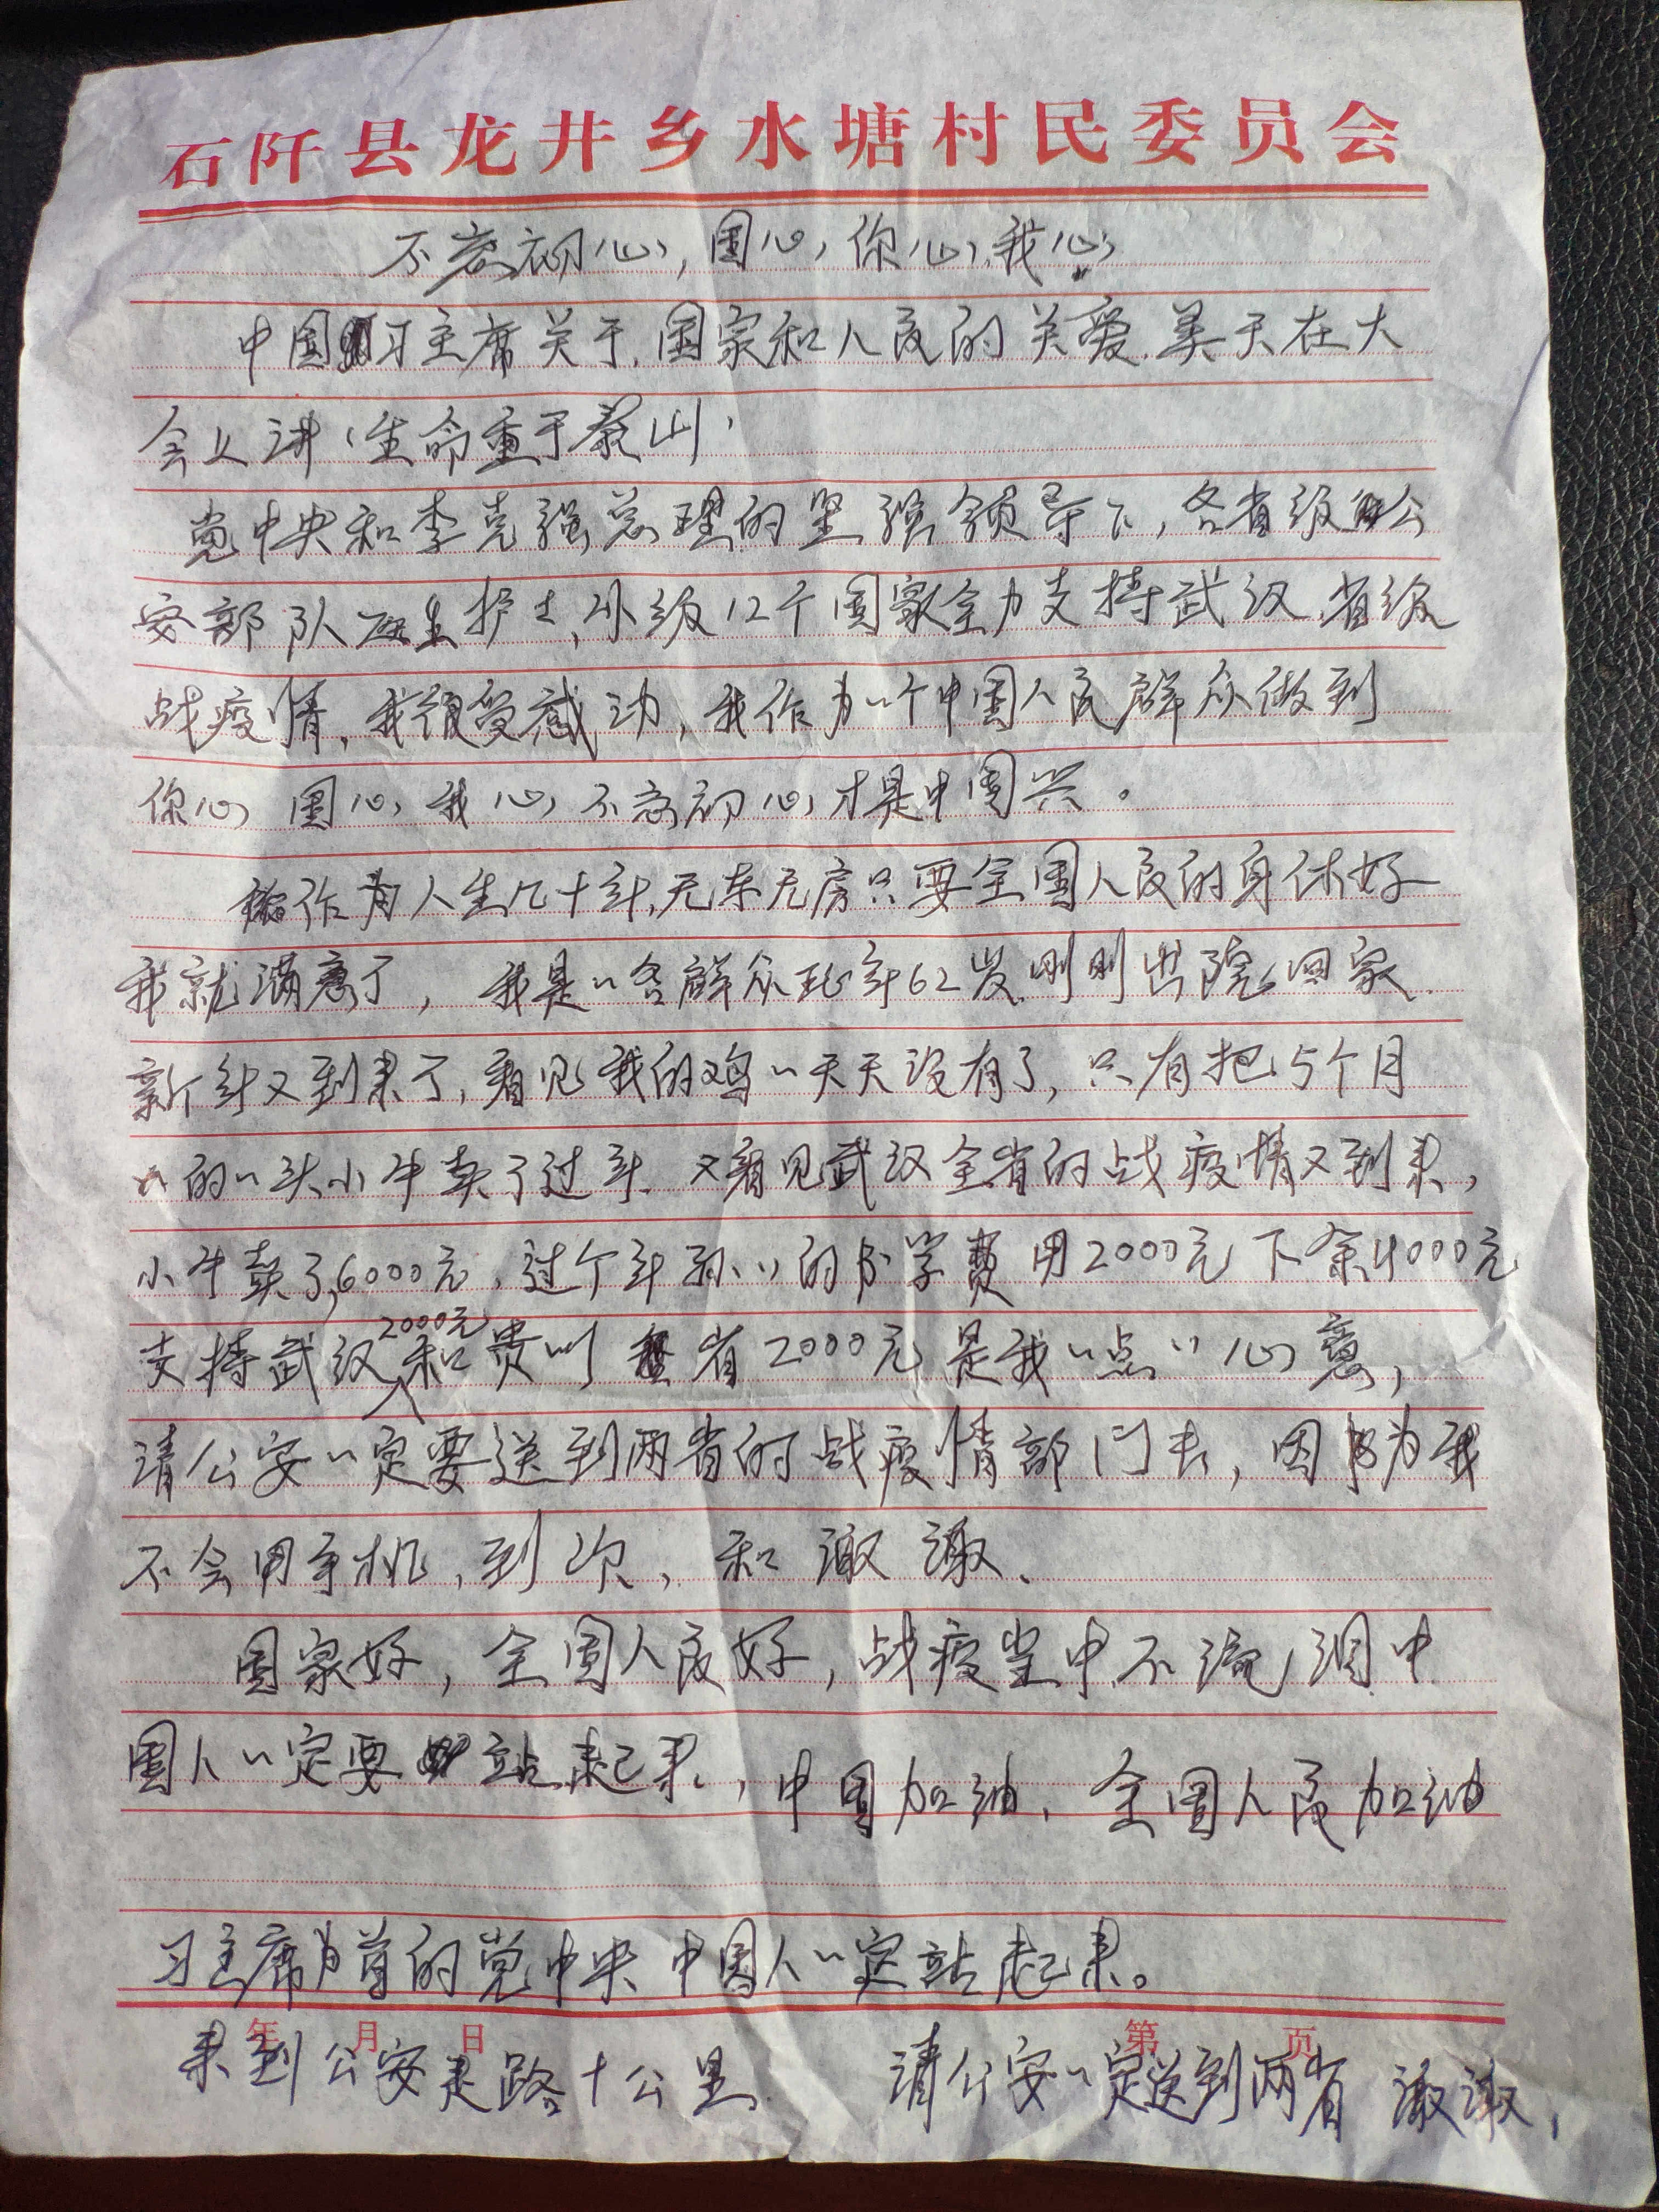 石阡县龙井乡水塘村民委员会
不忘初心,国心,你心,我心
中国习主席关于.国家和人民的关爱.美天在大
会上讲,生命重于泰山,
党中央和李克强总理的坚强领导下,各省级公
安部队医生护士,外级12个国家全力支持武汉.省级
战疫情,我很受感动,我作为一个中国人民群众做到
你心 国心,我心,不忘初心,才是中国兴。
作为人生几十年,无车无房只要全国人民的身体好
我就满意了, 我是一各群众现年62岁,刚刚出院回家.
新年又到来了,看见我的鸡一天天没有了,只有把5个月
的一头小牛卖了过年.又看见武汉全省的战疫情又到来,
小牛卖了,6000元,过个年孙儿的书学费用2000元下余4000元
支持武汉2000元和贵州省2000元是我一点心意,
请公安一定要送到两省的战疫情部门去,因为我
不会用手机,到次,和谢谢、
国家好,全国人民好,战疫当中不流泪中
国人一定要站起来,中国加油、全国人民加油
习主席为首的党中央 中国人一定站起来。
年 月 日 第 页
来到公安走路十公里. 请公安一定送到两省 谢谢,